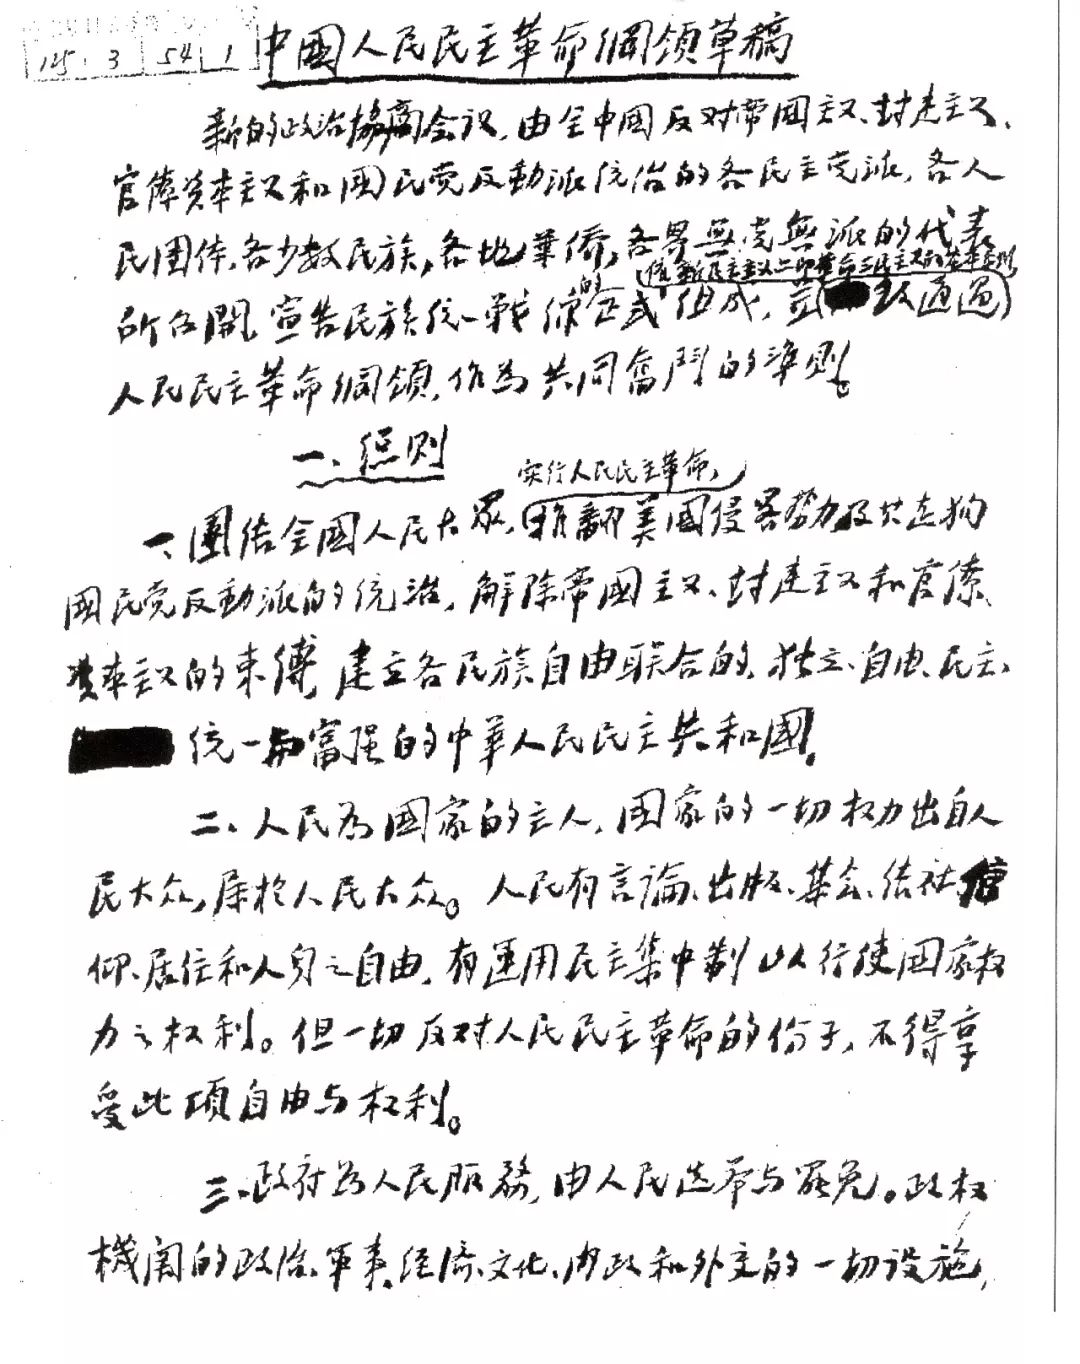 125 3 54 1
中國人民民主革命綱領草稿
新的政治協商会议，由全中國反对帝国主义、封建主义、
官僚资本主义和國民党反動派统治的各民主党派，各人
民团体，各少数民族，各地華侨，各界無党無派的代表
依新民主主义—即革命三民主义的
所召開，宣告民族统一戰線的正式组成，並致通過
人民民主革命綱領，作為共同奮鬥的準则。
一、总则
实行人民民主革命，
一、團结全國人民大眾，推翻美國侵畧势力及其走狗
國民党反動派的统治，解除帝國主义、封建主义和官僚
资本主义的束缚，建立各民族自由联合的、独立、自由、民主、
统一与富强的中華人民民主共和國。
二、人民為國家的主人，国家的一切权力出自人
民大众，属於人民大众。人民有言論、出版、集会、结社、信
仰、居住和人身之自由，有運用民主集中制以行使国家权
力之权利。但一切反对人民民主革命的份子，不得享
受此项自由与权利。
三、政府為人民服務，由人民选举与罷免。政权
機関的政治、軍事、经济、文化、内政和外交的一切设施，